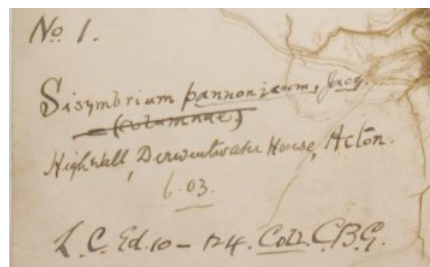 No 1.
Sisymbrium pannonicum, Jacq.
= (columnae)
High wall, Derwentwater House, Acton.
6.03.
L.C. Ed. 10 - 124. Coll. C.B.G.